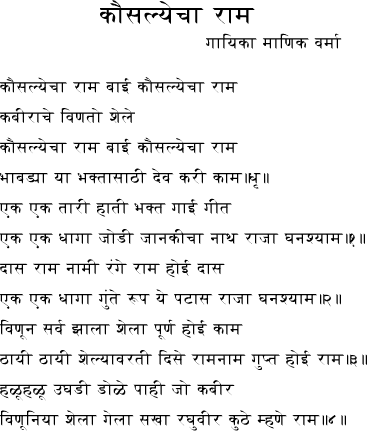 कौसल्येचा राम
गायिका माणिक वर्मा
कौसल्येचा राम बाई कौसल्येचा राम
कबीराचे विणतो शेले
कौसल्येचा राम बाई कौसल्येचा राम
भावड्या या भक्तासाठी देव करी काम॥धृ॥
एक एक तारी हाती भक्त गाई गीत
एक एक धागा जोडी जानकीचा नाथ राजा घनश्याम॥१॥
दास राम नामी रंगे राम होई दास
एक एक धागा गुंते रूप ये पटास राजा घनश्याम॥२॥
विणून सर्व झाला शेला पूर्ण होई काम
ठायी ठायी शेल्यावरती दिसे रामनाम गुप्त होई राम॥३॥
हळूहळू उघडी डोळे पाही जो कबीर
विणूनिया शेला गेला सखा रघुवीर कुठे म्हणे राम॥४॥